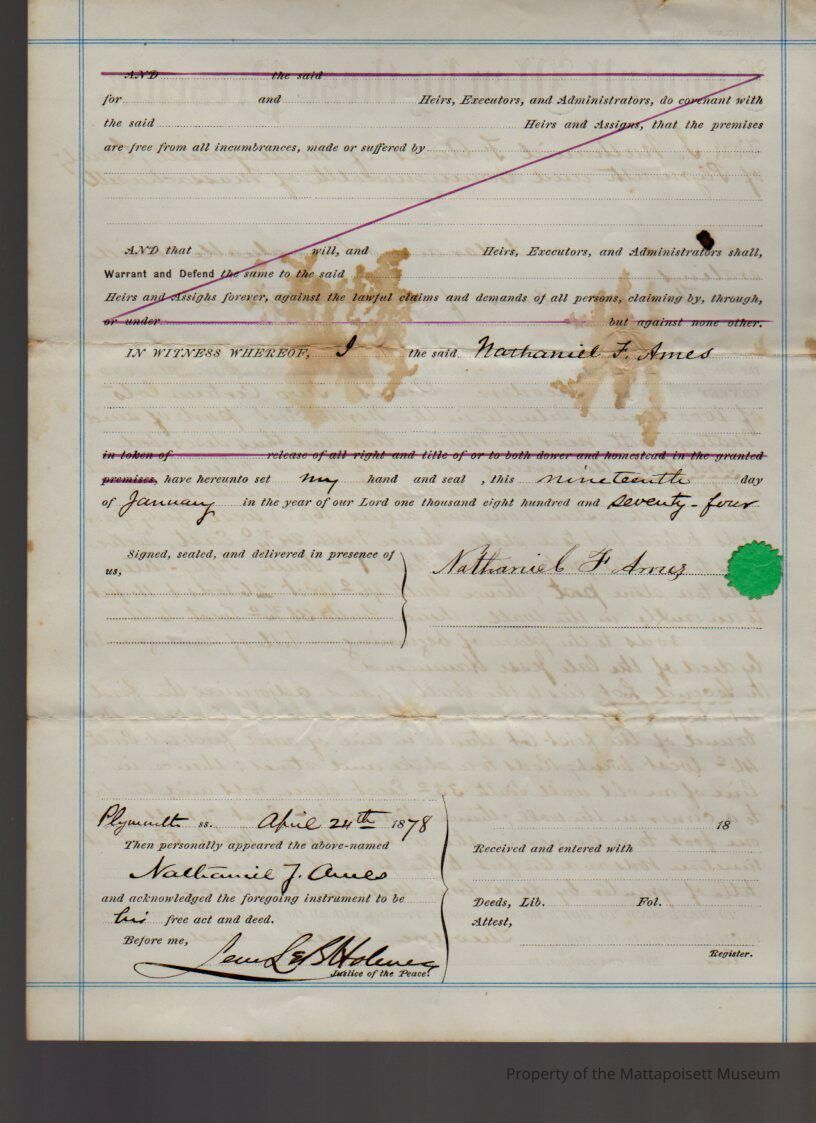 AND the said
for and Heirs, Executors, and Administrators, do covenant with
the said Heirs and Assigns, that the premises
are free from all incumbrances, made or suffered by
AND that will, and Heirs, Executors, and Administrators shall,
Warrant and Defend the same to the said
Heirs and Assighs forever, against the lawful claims and demands of all persons, claiming by, through,
or under but against none other.
IN WITNESS WHEREOF, I the said Nathaniel F. Ames
in token of release of all right and title of or to both dower and homestead in the granted
premises, have hereunto set my hand and seal , this nineteenth day
of January in the year of our Lord one thousand eight hundred and seventy-four
Signed, sealed, and delivered in presence of
us,
Nathaniel F Ames
Plymouth ss. April 24th 1878
Then personally appeared the above-named
Nathaniel F. Ames
and acknowledged the foregoing instrument to be
his free act and deed.
Before me,
Holmes
Justice of the Peace.
18
Received and entered with
Deeds, Lib. Fol.
Attest,
Register.
Property of the Mattapoisett Museum